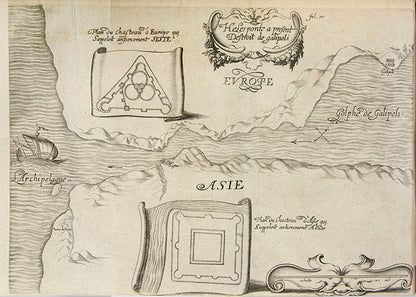 fol. iv
Plan du chasteau d Europe qu
S'apeloit antienement SESTE
Helesponte a present
Desthoit de galipoli
EVROPE
Golphe de Galipoli
Archipelague
ASIE
Plan du chasteau d'Asie qui
S'appeloit antienement Abide